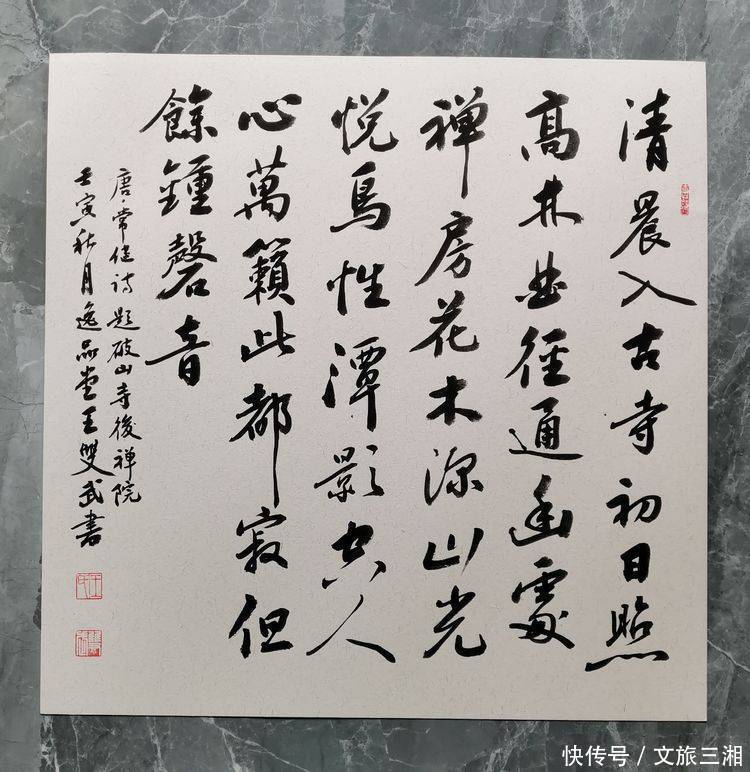 清晨入古寺初日照
高林曲径通幽處
禅房花木深山光
悦鳥性潭影空人
心萬籟此都寂但
餘鍾磬音
唐·常建诗题破山寺後禅院
壬寅秋月逸品堂王雙武書
快传号／文旅三湘